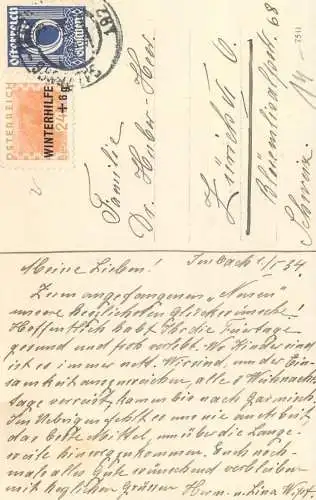 Österreich
ÖSTERREICH
WINTERHILFE
+6g
24
192
Familie
Dr. Huber-Heer
Zürich 6.
68
Schweiz.
Meine Lieben! Imbach 1/I 34.
Zum angefangenen „Neuen"
unsere herzlichsten Glückwünsche!
Hoffentlich habt Ihr die Feiertage
gesund und froh verlebt. Wo Kinder sind
ist es immer nett. Wir sind, um der Ein-
samkeit auszuweichen, alle Weihnachts-
tage verreist, kamen bis nach Garmisch.
Im Uebrigen fehlt es uns nie an Arbeit,
das beste Mittel, um über die Lange-
weile hinwegzukommen. Euch noch-
mals alles Gute wünschend verbleiben
mit herzlichen Grüssen Herm. u. Lina Wyss.